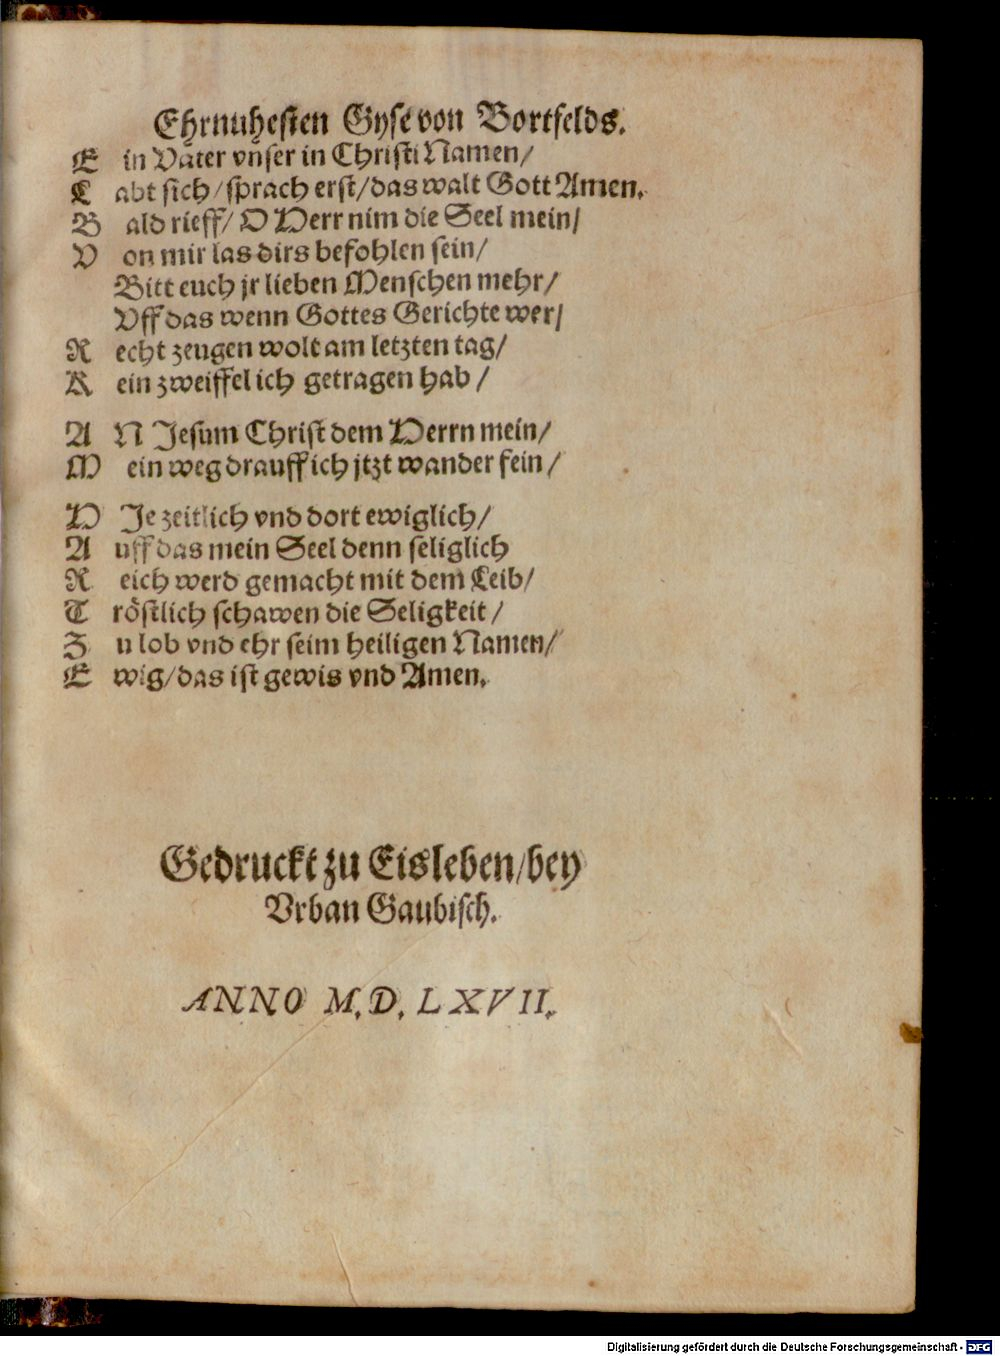 Ehrnuhesten Gyse von Bortfelds.
E in Vater vnser in Christi Namen/
L abt sich/sprach erst/das walt Gott Amen.
B ald rieff/ O Herr nim die Seel mein/
V on mir las dirs befohlen sein/
Bitt euch jr lieben Menschen mehr/
Vff das wenn Gottes Gerichte wer/
R echt zeugen wolt am letzten tag/
K ein zweiffel ich getragen hab/
A N Jesum Christ dem Herrn mein/
M ein weg drauff ich jtzt wander fein/
H Je zeitlich vnd dort ewiglich/
A uff das mein Seel denn seliglich
R eich werd gemacht mit dem Leib/
T röstlich schawen die Seligkeit/
Z u lob vnd ehr seim heiligen Namen/
E wig/das ist gewis vnd Amen.
Gedruckt zu Eisleben/bey
Vrban Gaubisch.
ANNO M.D. LXVII.
Digitalisierung gefördert durch die Deutsche Forschungsgemeinschaft - DFG